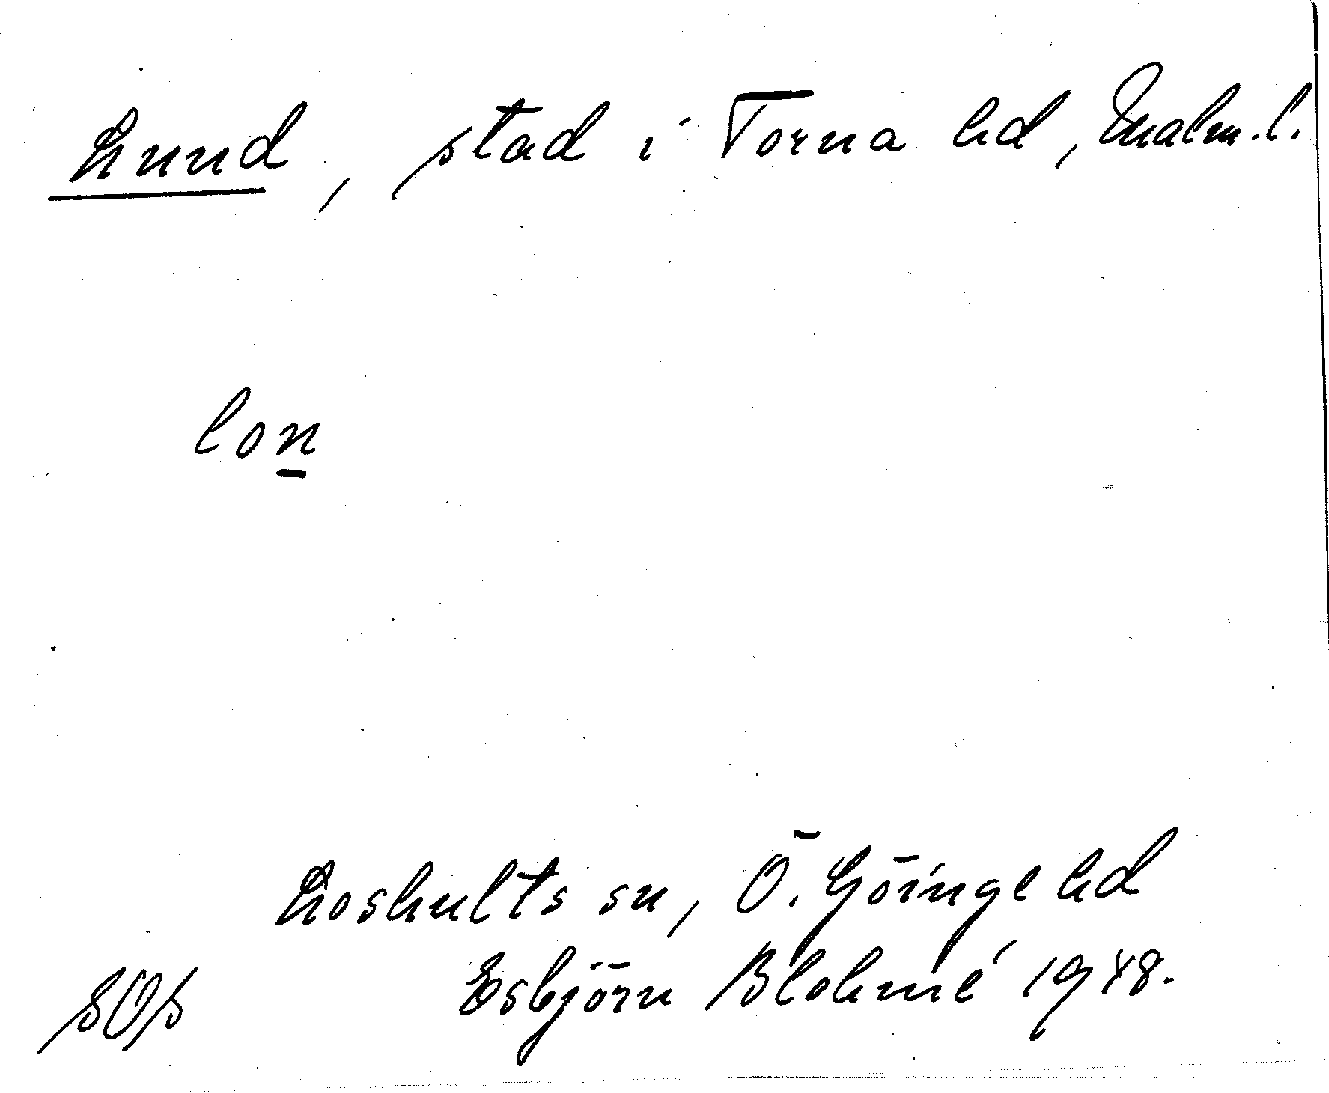 Lund, stad i Torna hd, Malm. l.
lon
Loshults sn, Ö. Göinge hd
Esbjörn Blohmé 1948.
SOS